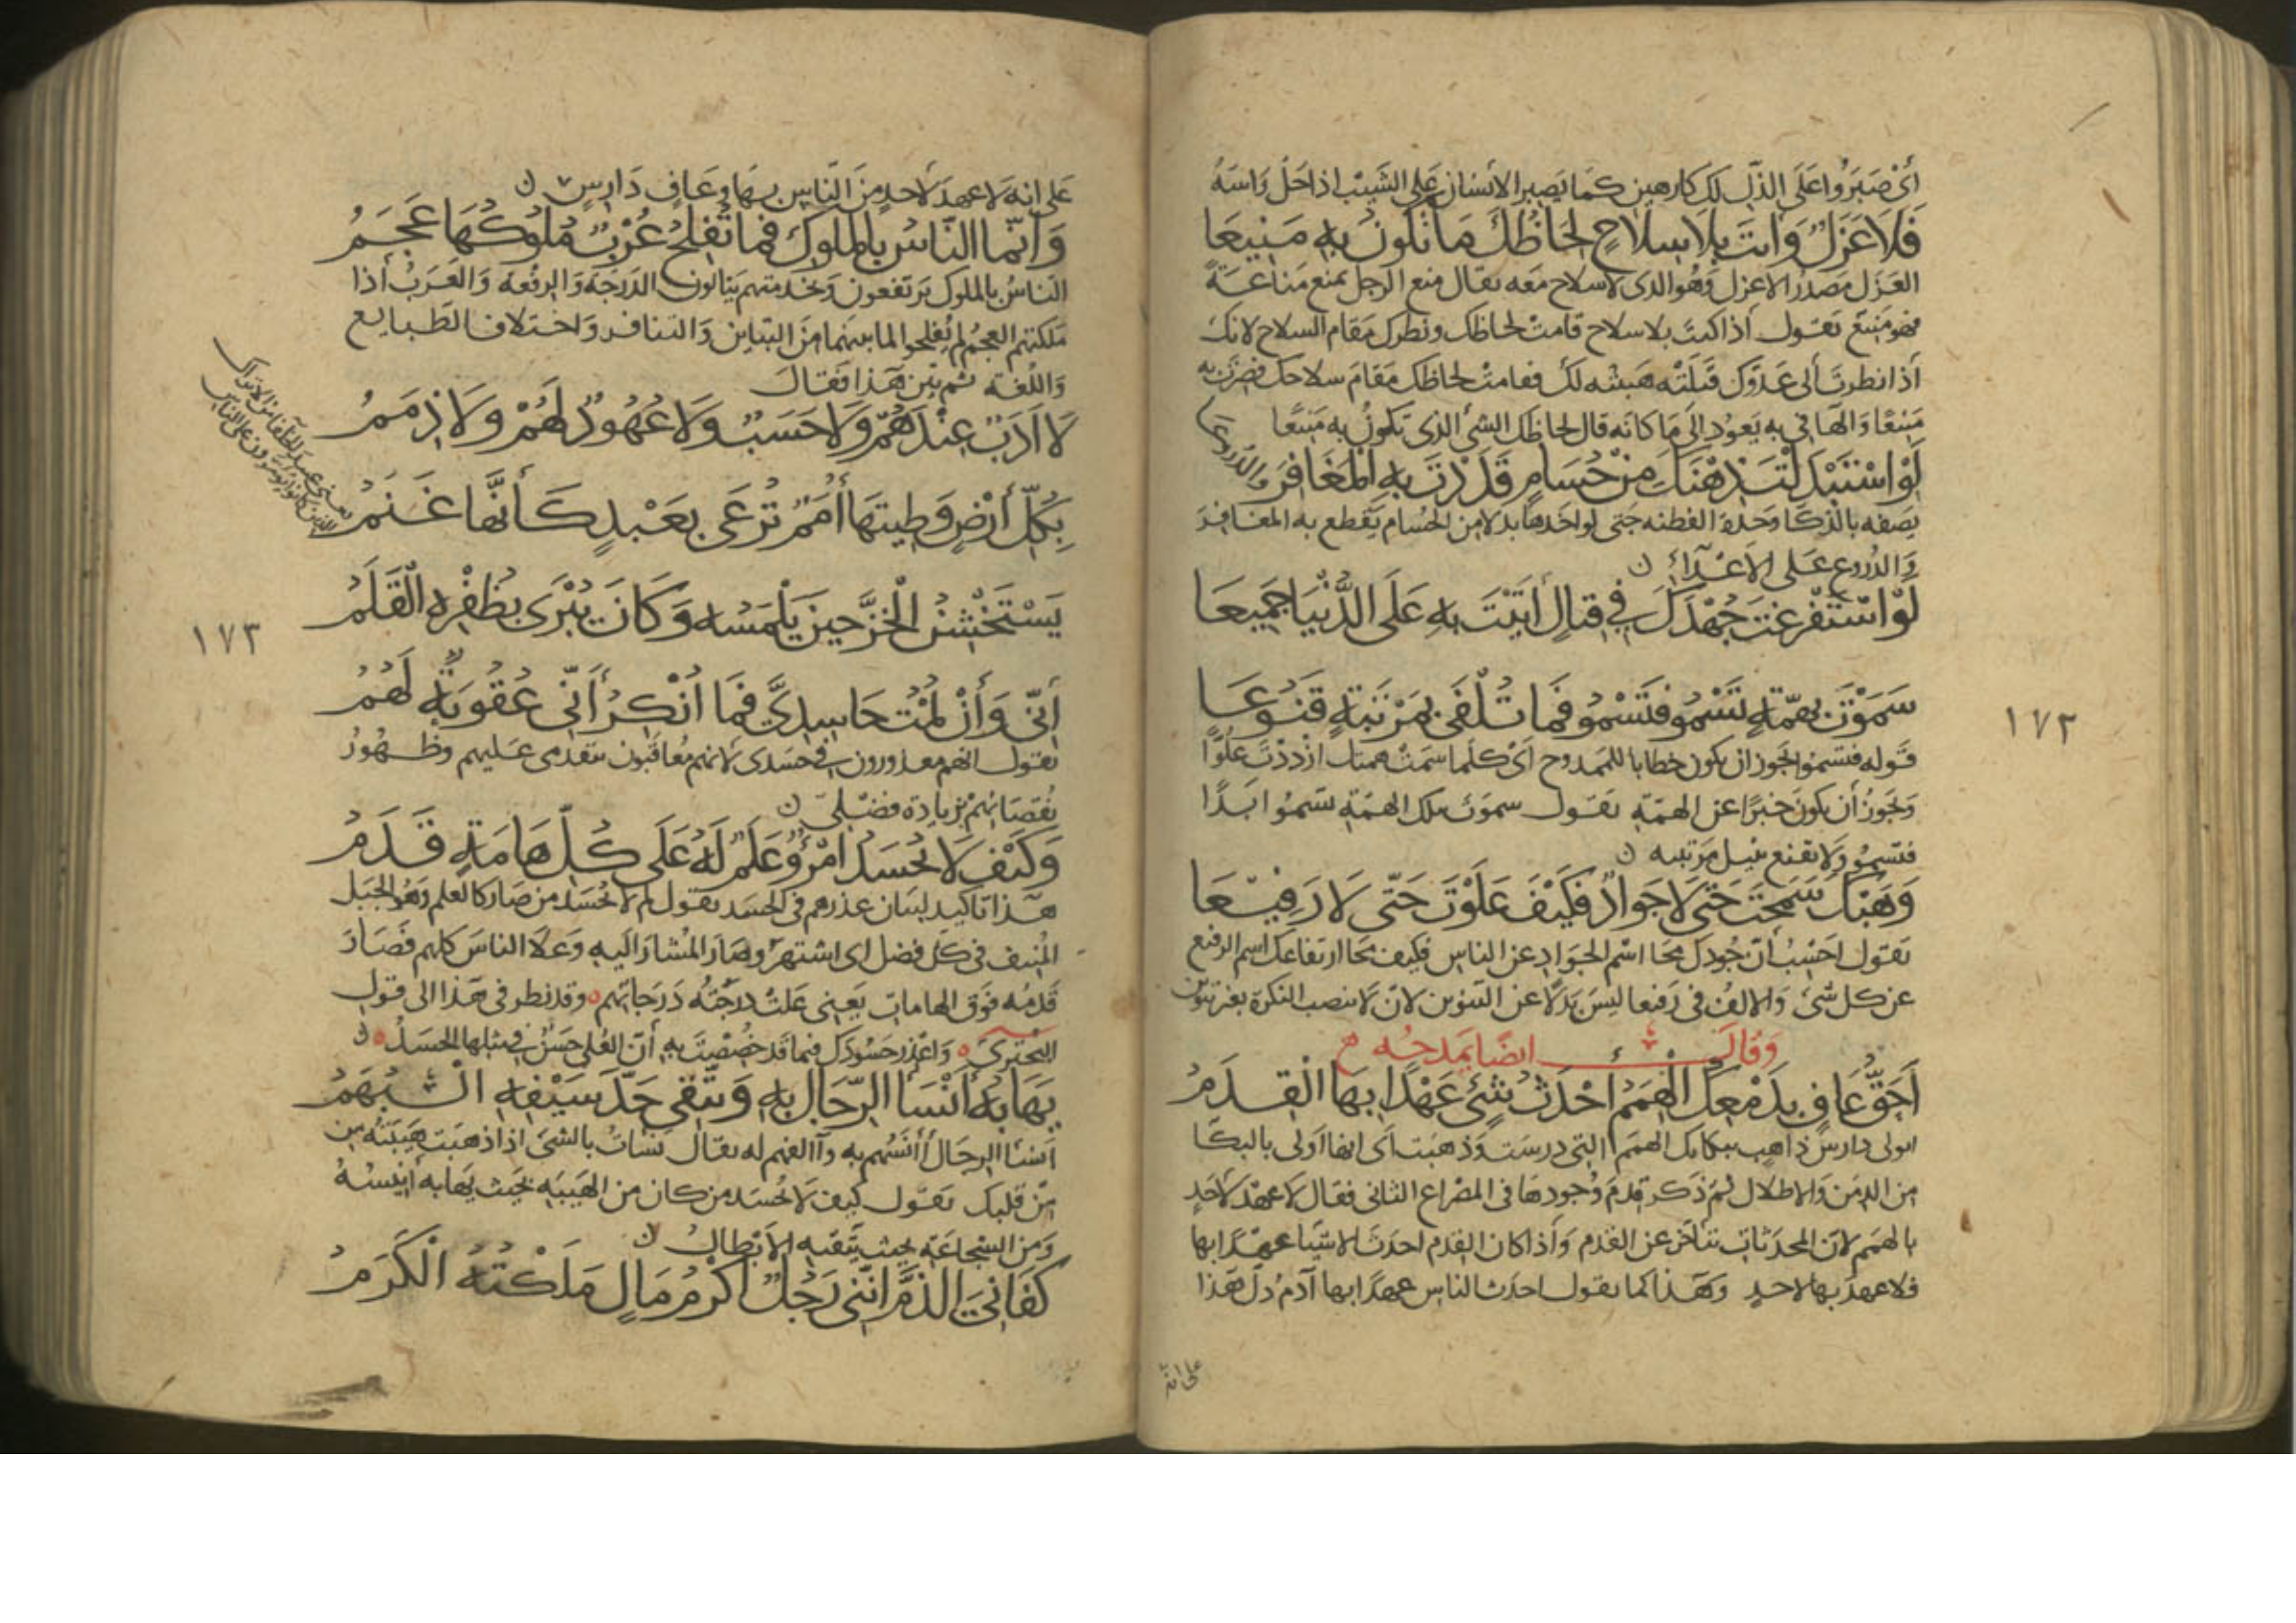 أى صبروا على الذل لك كارهين كما يصبر الانسان على الشيب اذا حل راسه
فَلَا عَزَلٌ وَانتَ بِلَا سِلَاحٍ لِحَاظُكَ مَا تَكُونُ بِهِ مَنِيعَا
العزل مصدر الاعزل وهو الذى لا سلاح معه يقال منع الرجل يمنع مناعة
فهو منيع يقول اذا كنت بلا سلاح قامت لحاظك ونظرك مقام السلاح لانك
اذا نظرت الى عدوك قتلته هيبته لك فقامت لحاظك مقام سلاحك فصرت به
منيعا والها فى به يعود الى ما كانه قال لحاظك الشئ الذى تكون به منيعا
لَوِ اسْتَبْدَلْتَ ذِهْنَكَ مِنْ حُسَامٍ قَدَدْتَ بِهِ الْمَغَافِرَ والدروعا
يصفه بالذكا وحدة الفطنه حتى لو اخذها بدلا من الحسام يقطع به المغافر
والدروع على الاعداء ن
لَوِ اسْتَفْرَغْتَ جُهْدَكَ فِى قِتَالٍ أَتَيْتَ بِهِ عَلَى الدُّنْيَا جَمِيعَا
سَمَوْتَ بِهِمَّةٍ تَسْمُو فَتَسْمُو فَمَا تُلْفَى بِمَرْتَبَةٍ قَنُوعَا
قوله فتسمو يجوز ان يكون خطابا للممدوح اى كلما سمت همتك ازددت علوا
ويجوز أن يكون خبرا عن الهمة يقول سموت بتلك الهمة تسمو ابدا
فتسمو ولا تقنع بنيل مرتبه ن
وَهَبْكَ سَمَحْتَ حَتَّى لَا جَوَادٌ فَكَيْفَ عَلَوْتَ حَتَّى لَا رَفِيعَا
يقول احسب أن جودك محا اسم الجواد عن الناس فكيف محا ارتفاعك اسم الرفيع
عن كل شئ والالف فى رفيعا ليس بدلا عن التنوين لان لا تنصب النكرة بغير تنوين
وقال ايضا يمدحه
أَحَقُّ عَافٍ بِدَمْعِكَ الْهِمَمُ أَحْدَثُ شَئٍ عَهْدًا بِهَا الْقِدَمُ
اولى دارس ذاهب ببكائك الهمم التى درست وذهبت أى انها اولى بالبكا
من الدمن والاطلال ثم ذكر قدم وجودها فى المصراع الثانى فقال لا عهد لاحد
بالهمم لان المحدثات تتاخر عن القدم واذا كان القدم احدث الاشيا عهدا بها
فلا عهد بها لاحد وهذا كما يقول احدث الناس عهدا بها آدم دل هذا
على انه
١٧٢
على انه لا عهد لاحد من الناس بها وعاف دارس ن
وَانَّمَا النَّاسُ بِالْمُلُوكِ فَمَا تُفْلِحُ عُرْبٌ مُلُوكُهَا عَجَمُ
الناس بالملوك يرتفعون وبخدمتهم ينالون الدرجة والرفعة والعرب اذا
ملكتهم العجم لم يفلحوا لما بينهما من التباين والتنافر واختلاف الطبايع
واللغة ثم بين هذا فقال
لَا أَدَبٌ عِنْدَهُمْ وَلَا حَسَبٌ وَلَا عُهُودٌ لَهُمْ وَلَا ذِمَمُ
بِكُلِّ أَرْضٍ وَطِيتُهَا أُمَمٌ تُرْعَى بِعَبْدٍ كَأَنَّهَا غَنَمُ
يَسْتَخْشِنُ الْخَزَّ حِينَ يَلْمَسُهُ وَكَانَ يُبْرَى بِظُفْرِهِ الْقَلَمُ
١٧٣
أَنِّى وَأَنْ لُمْتُ حَاسِدِىَّ فَمَا أُنْكِرُ أَنِّى عُقُوبَةٌ لَهُمُ
يقول انهم معذورون فى حسدى لانهم معاقبون بتقدمى عليهم وظهور
نقصانهم بزيادة فضلى ن
وَكَيْفَ لَا يُحْسَدُ امْرُؤٌ عَلَمٌ لَهُ عَلَى كُلِّ هَامَةٍ قَدَمُ
هذا تاكيد لبيان عذرهم فى الحسد يقول لم لا يحسد من صار كالعلم وهو الجبل
المنيف فى كل فضل اى اشتهر وصار المشار اليه وعلا الناس كلهم فصار
قدمه فوق الهامات يعنى علت درجته درجاتهم وقد نظر فى هذا الى قول
البحترى واعذر حسودك فيما قد خصصت به أن العلى حسن فى مثلها الحسد ن
يَهَابُهُ أَبْسَأُ الرِّجَالِ بِهِ وَتَتَّقِى حَدَّ سَيْفِهِ الْبُهَمُ
من قلبك يقول كيف لا يحسد من كان من الهيبه بحيث يهابه أنيسه
ومن الشجاعة بحيث يتقيه الابطال ن
كَفَانِىَ الذَّمَّ أنَّنِى رَجُلٌ أَكْرَمُ مَالٍ مَلَكْتُهُ الْكَرَمُ